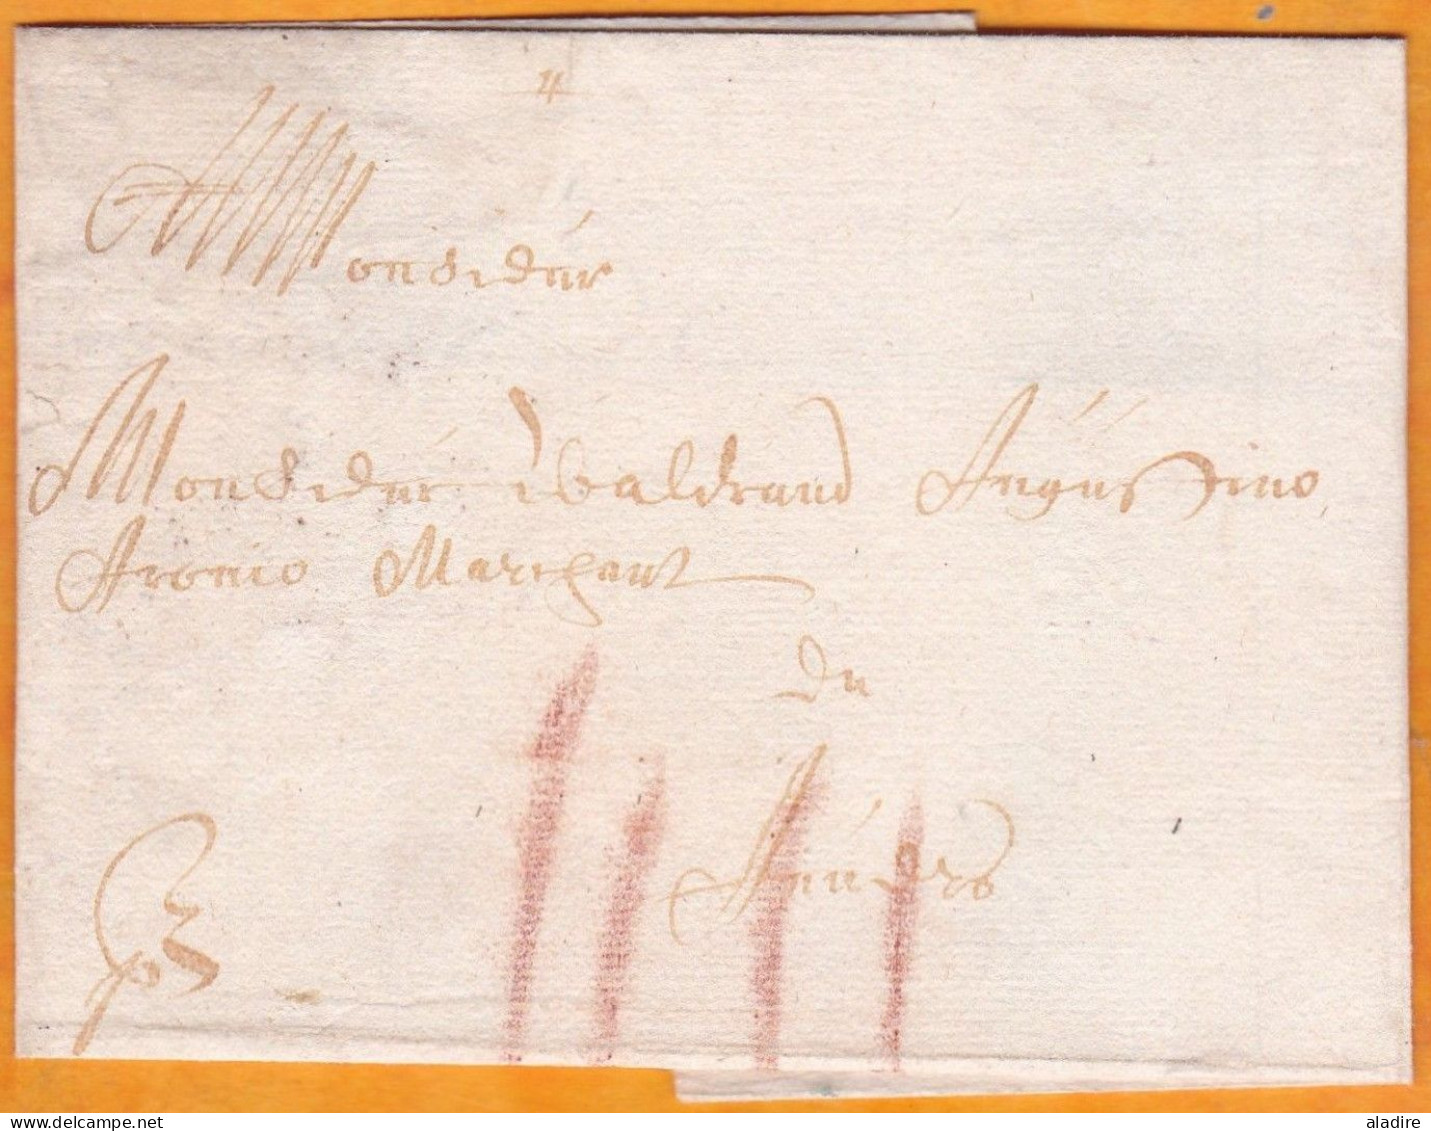 Monsieur
Monsieur Waldrand Augustino
Aronio Marchant
du
Anvers
www.delcampe.net
aladire